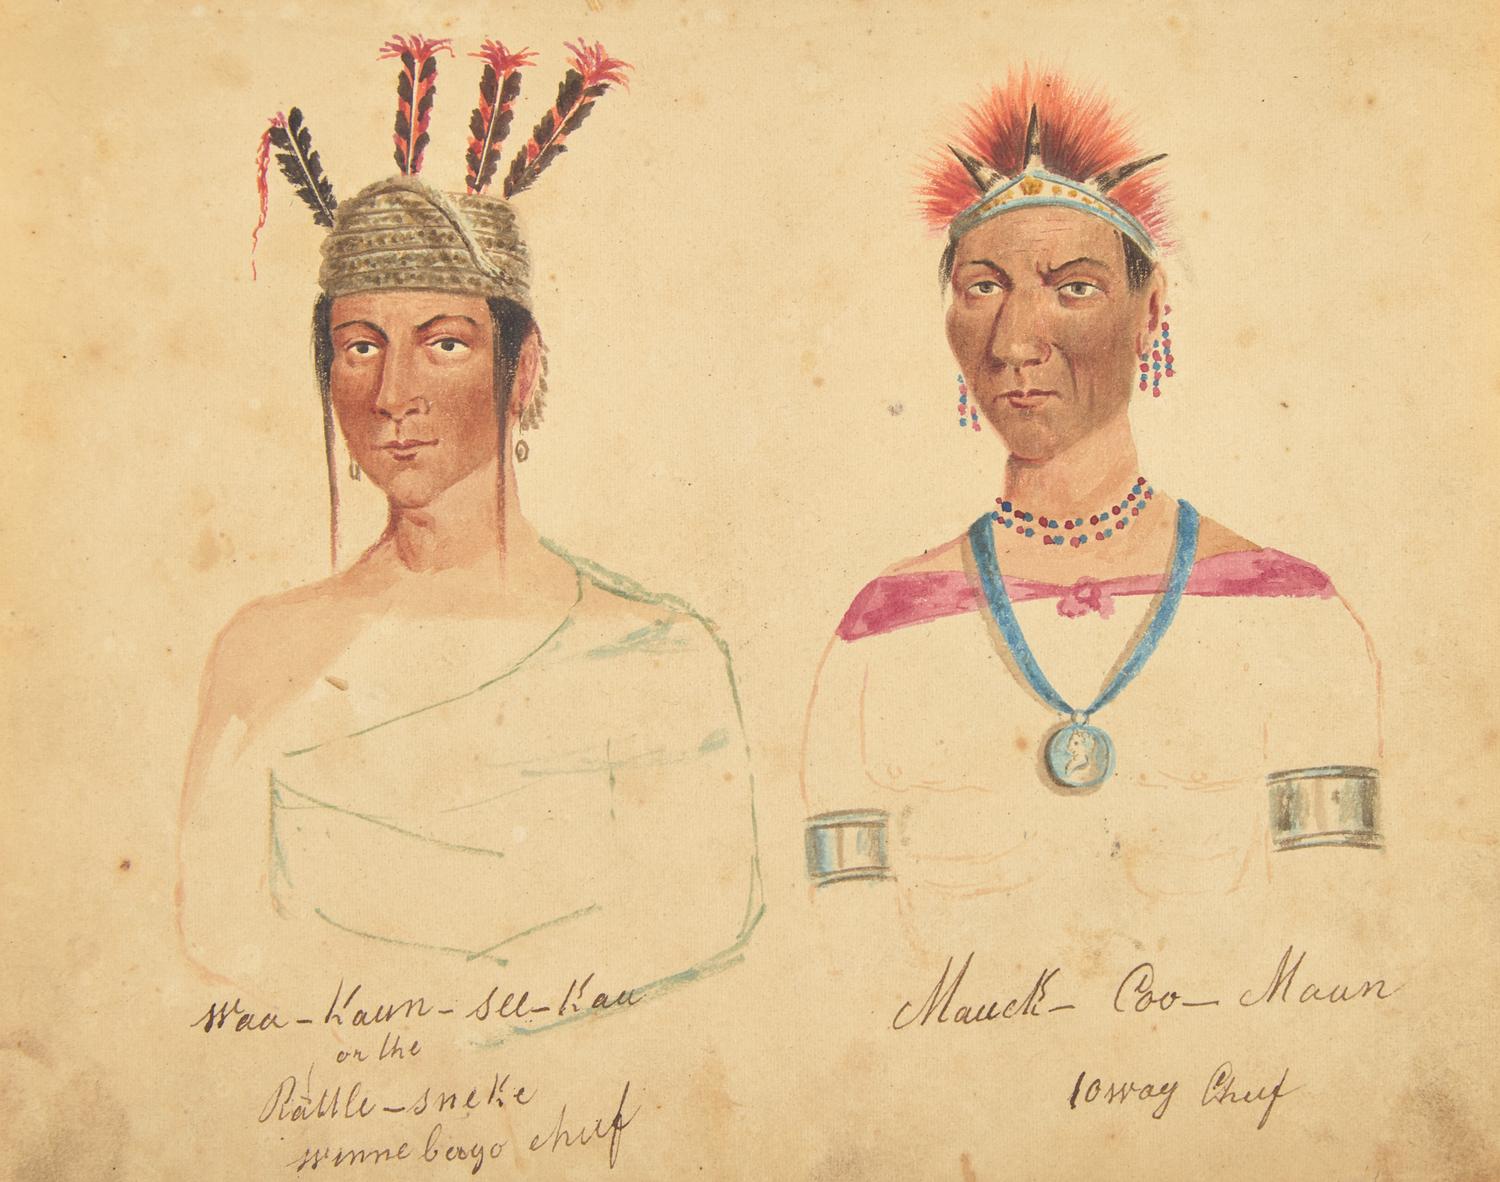 Waa-Kaun-see-Kau
or the
Rattle-sneke
winnebago chief
Mauck-Coo-Maun
Ioway Chief